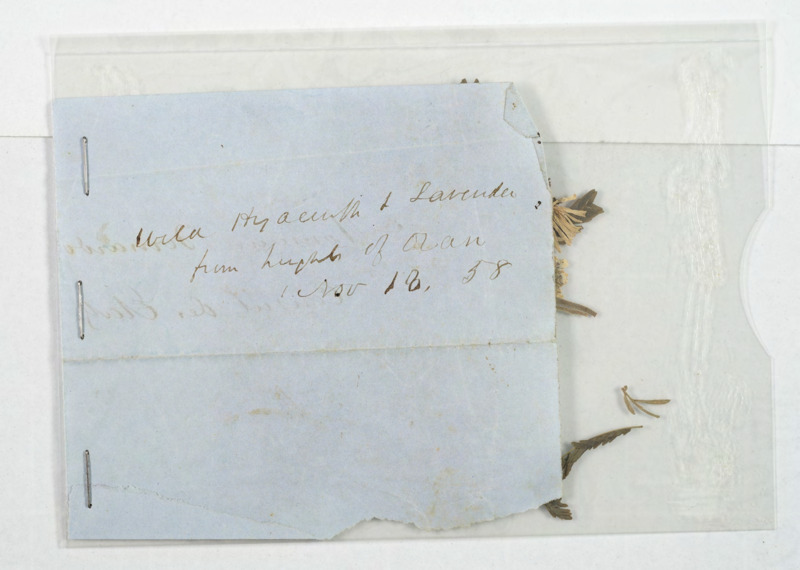 Wild Hyacinth & Lavender
from heights of Oran
Nov 18. 58